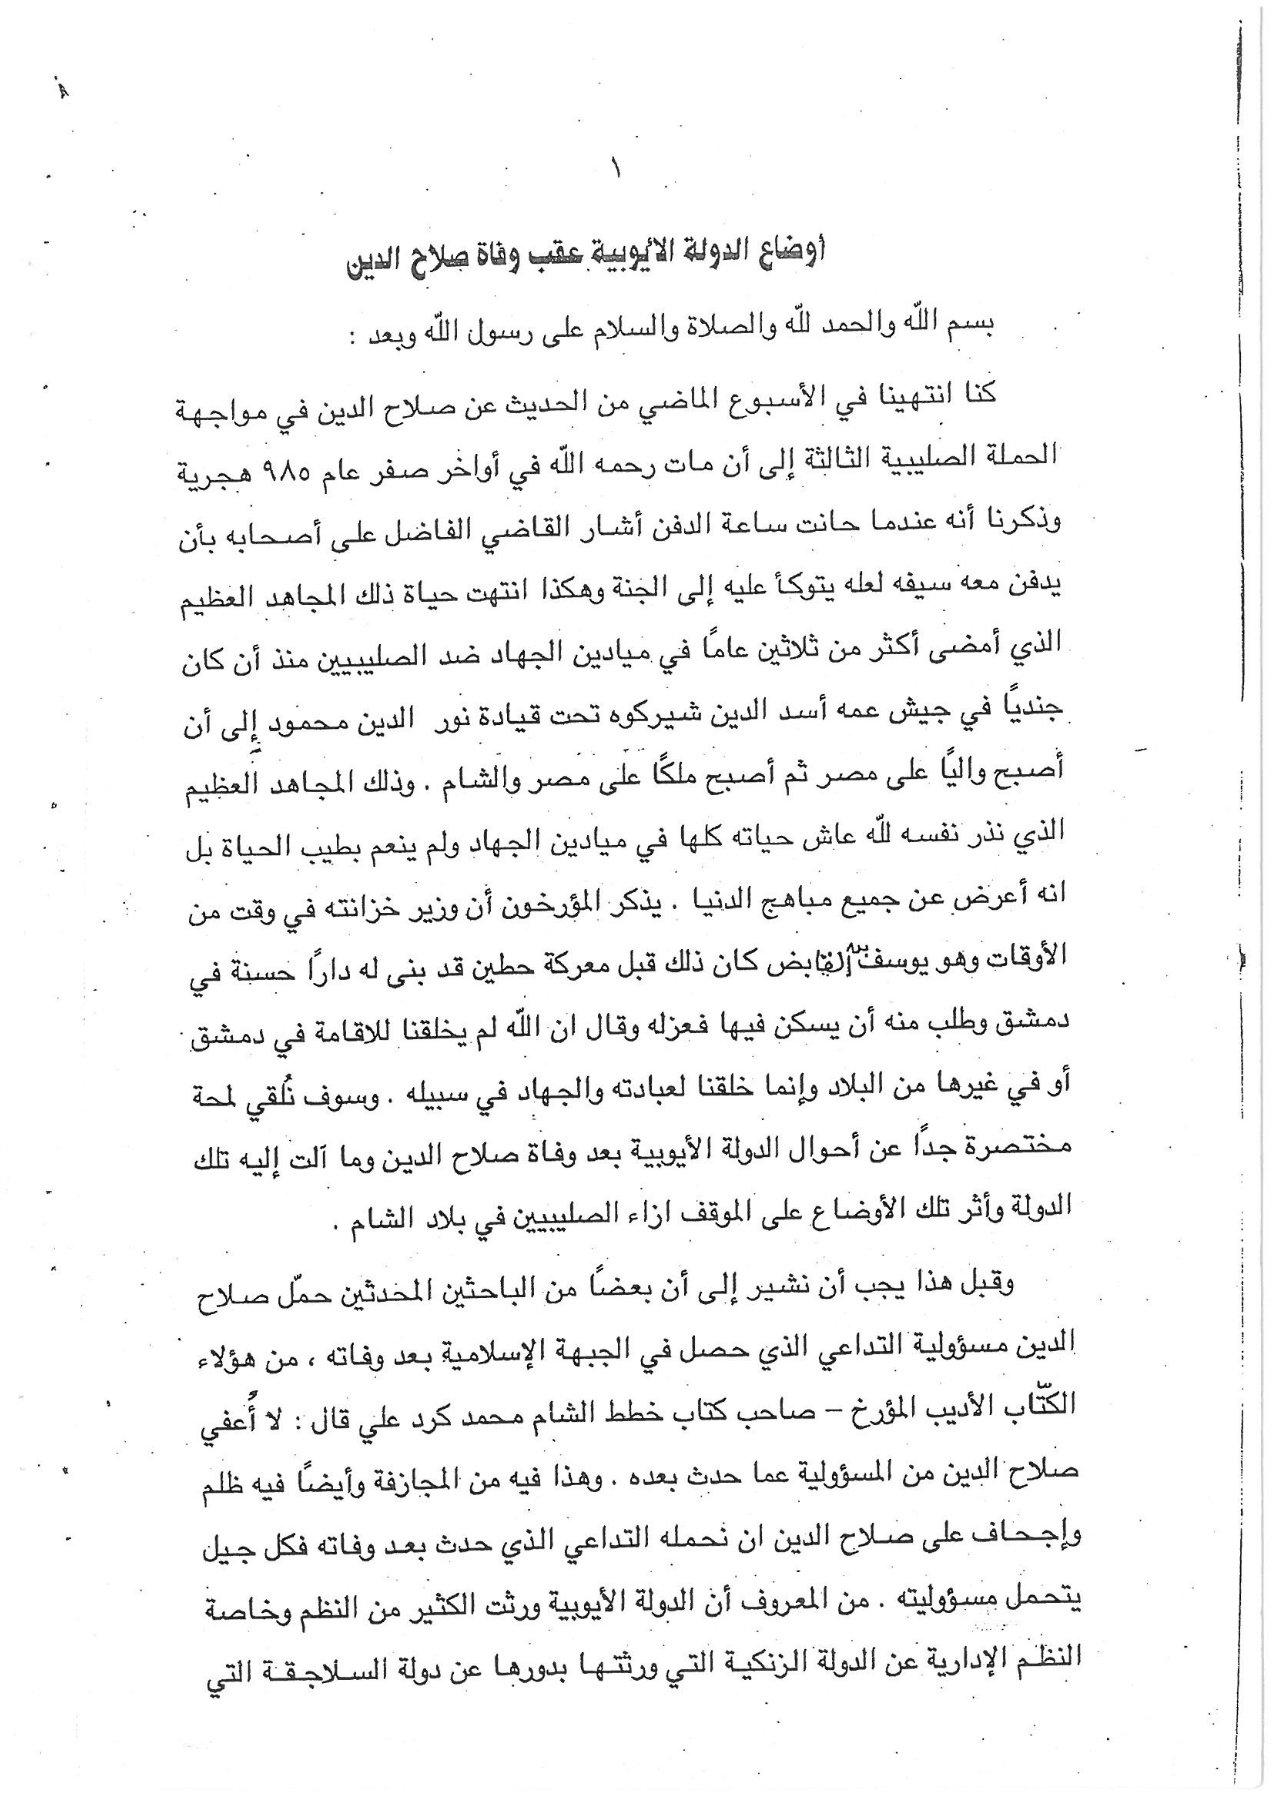 ١
أوضاع الدولة الأيوبية عقب وفاة صلاح الدين
بسم الله والحمد لله والصلاة والسلام على رسول الله وبعد :
كنا انتهينا في الأسبوع الماضي من الحديث عن صلاح الدين في مواجهة
الحملة الصليبية الثالثة إلى أن مات رحمه الله في أواخر صفر عام ٩٨٥ هجرية
وذكرنا أنه عندما حانت ساعة الدفن أشار القاضي الفاضل على أصحابه بأن
يدفن معه سيفه لعله يتوكأ عليه إلى الجنة وهكذا انتهت حياة ذلك المجاهد العظيم
الذي أمضى أكثر من ثلاثين عامًا في ميادين الجهاد ضد الصليبيين منذ أن كان
جنديًا في جيش عمه أسد الدين شيركوه تحت قيادة نور الدين محمود إلى أن
أصبح واليًا على مصر ثم أصبح ملكًا على مصر والشام . وذلك المجاهد العظيم
الذي نذر نفسه لله عاش حياته كلها في ميادين الجهاد ولم ينعم بطيب الحياة بل
انه أعرض عن جميع مباهج الدنيا . يذكر المؤرخون أن وزير خزانته في وقت من
الأوقات وهو يوسف القابض كان ذلك قبل معركة حطين قد بنى له دارًا حسنة في
دمشق وطلب منه أن يسكن فيها فعزله وقال ان الله لم يخلقنا للاقامة في دمشق
أو في غيرها من البلاد وإنما خلقنا لعبادته والجهاد في سبيله . وسوف نُلقي لمحة
مختصرة جدًا عن أحوال الدولة الأيوبية بعد وفاة صلاح الدين وما آلت إليه تلك
الدولة وأثر تلك الأوضاع على الموقف ازاء الصليبيين في بلاد الشام .
وقبل هذا يجب أن نشير إلى أن بعضًا من الباحثين المحدثين حمّل صلاح
الدين مسؤولية التداعي الذي حصل في الجبهة الإسلامية بعد وفاته ، من هؤلاء
الكتّاب الأديب المؤرخ – صاحب كتاب خطط الشام محمد كرد علي قال : لا أُعفي
صلاح الدين من المسؤولية عما حدث بعده . وهذا فيه من المجازفة وأيضًا فيه ظلم
وإجحاف على صلاح الدين ان نحمله التداعي الذي حدث بعد وفاته فكل جيل
يتحمل مسؤوليته . من المعروف أن الدولة الأيوبية ورثت الكثير من النظم وخاصة
النظم الإدارية عن الدولة الزنكية التي ورثتها بدورها عن دولة السلاجقة التي